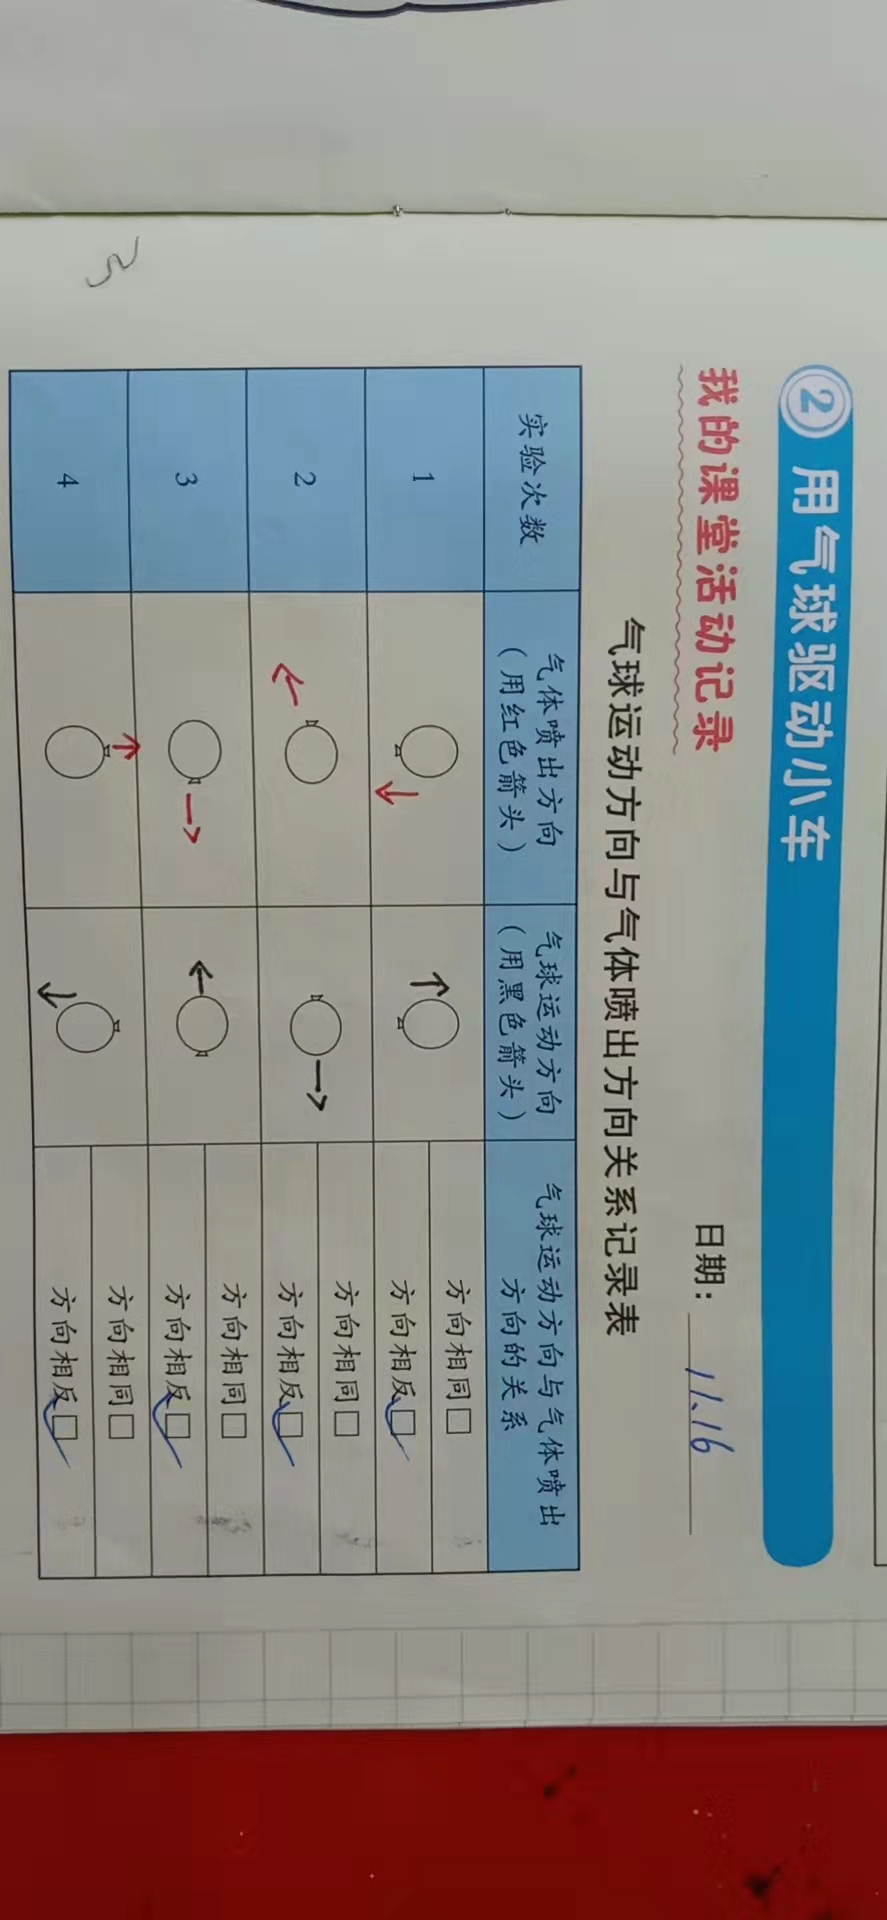 2 用气球驱动小车
我的课堂活动记录
日期: 11.16
气球运动方向与气体喷出方向关系记录表
实验次数
气体喷出方向
(用红色箭头)
气球运动方向
(用黑色箭头)
气球运动方向与气体喷出
方向的关系
1
方向相同□
方向相反□
2
方向相同□
方向相反□
3
方向相同□
方向相反□
4
方向相同□
方向相反□